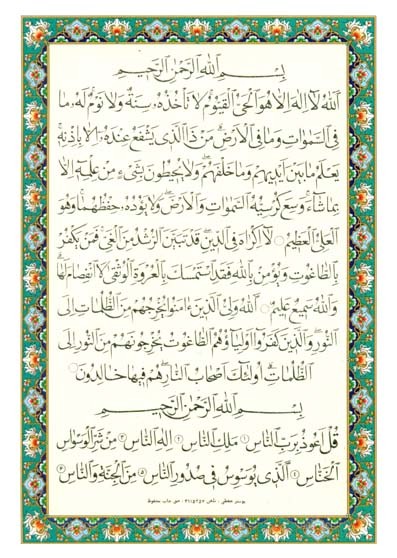 بِسْمِ اللَّهِ الرَّحْمَٰنِ الرَّحِيمِ
اللَّهُ لَا إِلَٰهَ إِلَّا هُوَ الْحَيُّ الْقَيُّومُ لَا تَأْخُذُهُ سِنَةٌ وَلَا نَوْمٌ لَهُ مَا
فِي السَّمَاوَاتِ وَمَا فِي الْأَرْضِ مَنْ ذَا الَّذِي يَشْفَعُ عِنْدَهُ إِلَّا بِإِذْنِهِ
يَعْلَمُ مَا بَيْنَ أَيْدِيهِمْ وَمَا خَلْفَهُمْ وَلَا يُحِيطُونَ بِشَيْءٍ مِنْ عِلْمِهِ إِلَّا
بِمَا شَاءَ وَسِعَ كُرْسِيُّهُ السَّمَاوَاتِ وَالْأَرْضَ وَلَا يَئُودُهُ حِفْظُهُمَا وَهُوَ
الْعَلِيُّ الْعَظِيمُ لَا إِكْرَاهَ فِي الدِّينِ قَدْ تَبَيَّنَ الرُّشْدُ مِنَ الْغَيِّ فَمَنْ يَكْفُرْ
بِالطَّاغُوتِ وَيُؤْمِنْ بِاللَّهِ فَقَدِ اسْتَمْسَكَ بِالْعُرْوَةِ الْوُثْقَىٰ لَا انْفِصَامَ لَهَا
وَاللَّهُ سَمِيعٌ عَلِيمٌ اللَّهُ وَلِيُّ الَّذِينَ آمَنُوا يُخْرِجُهُمْ مِنَ الظُّلُمَاتِ إِلَى
النُّورِ وَالَّذِينَ كَفَرُوا أَوْلِيَاؤُهُمُ الطَّاغُوتُ يُخْرِجُونَهُمْ مِنَ النُّورِ إِلَى
الظُّلُمَاتِ أُولَٰئِكَ أَصْحَابُ النَّارِ هُمْ فِيهَا خَالِدُونَ
بِسْمِ اللَّهِ الرَّحْمَٰنِ الرَّحِيمِ
قُلْ أَعُوذُ بِرَبِّ النَّاسِ ۱ مَلِكِ النَّاسِ ۲ إِلَٰهِ النَّاسِ ۳ مِنْ شَرِّ الْوَسْوَاسِ
الْخَنَّاسِ ۴ الَّذِي يُوَسْوِسُ فِي صُدُورِ النَّاسِ ۵ مِنَ الْجِنَّةِ وَالنَّاسِ ۶